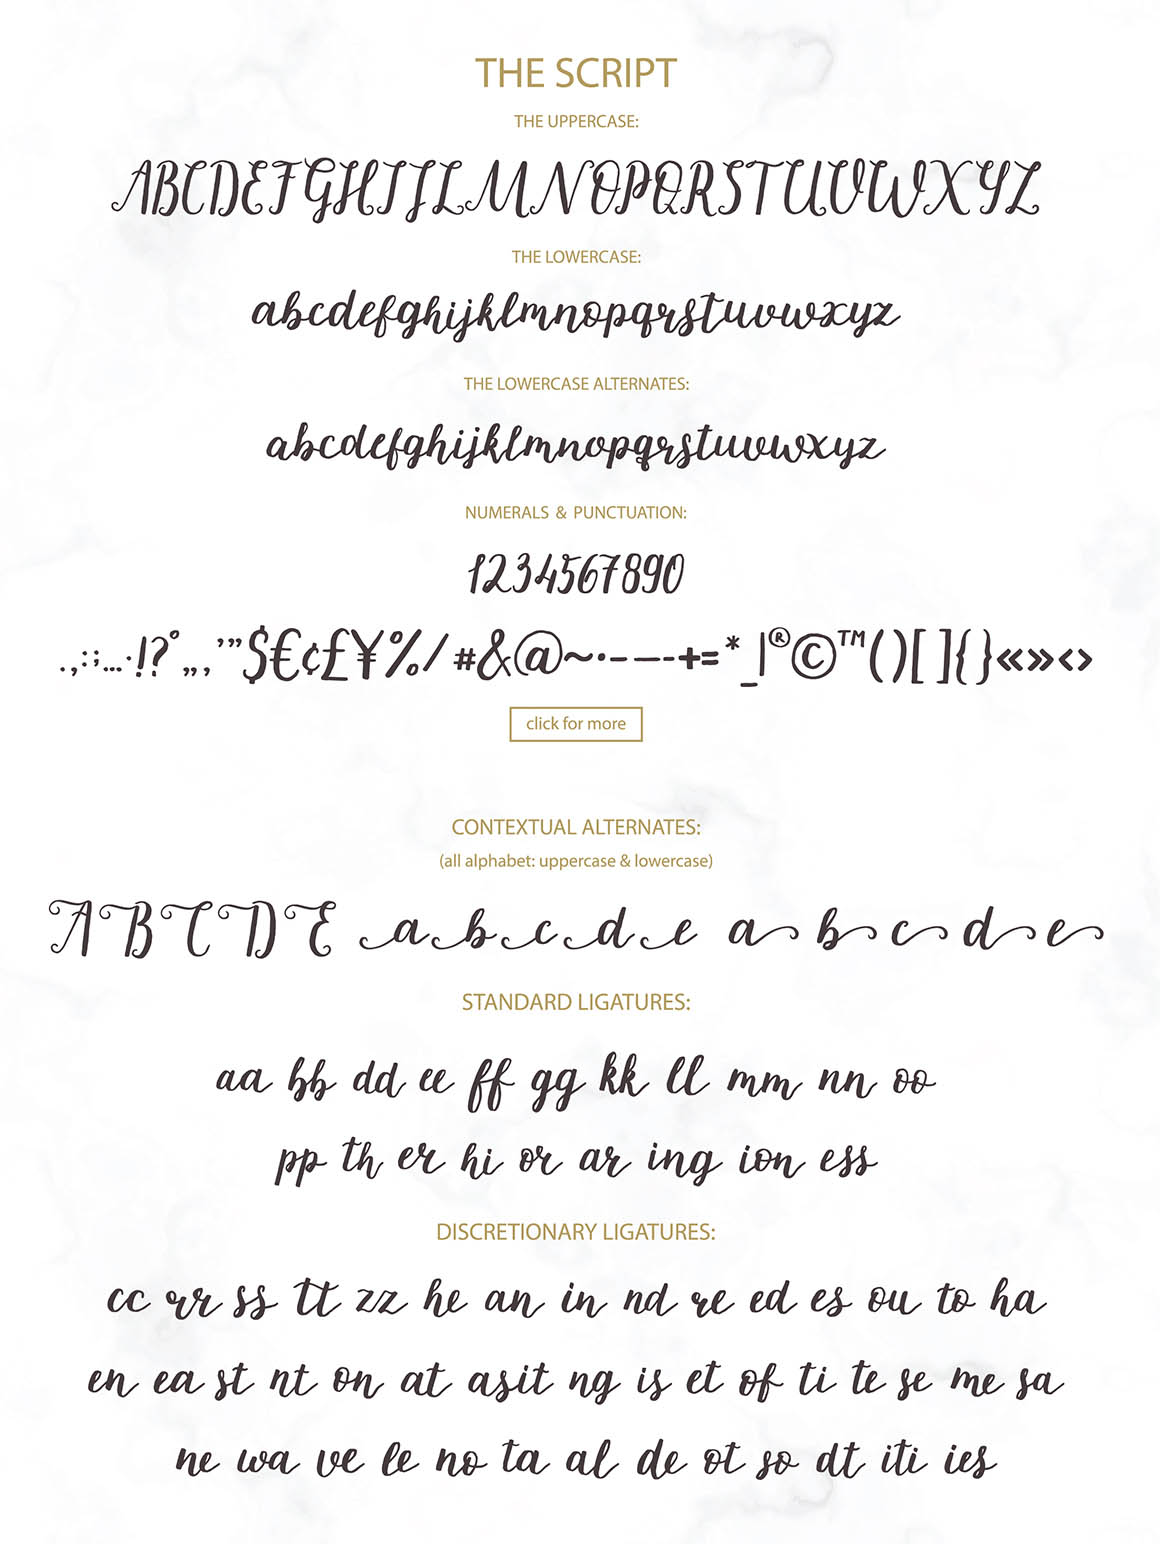 THE SCRIPT
THE UPPERCASE:
ABCDEFGHIJLMNOPQRSTUVWXYZ
THE LOWERCASE:
abcdefghijklmnopqrstuvwxyz
THE LOWERCASE ALTERNATES:
abcdefghijklmnopqrstuvwxyz
NUMERALS & PUNCTUATION:
1234567890
.,:;...·!?°„,’”$€¢£¥%/#&@~•-—-+=*_|®©™()[]{}«»‹›
click for more
CONTEXTUAL ALTERNATES:
(all alphabet: uppercase & lowercase)
A B C D E a b c d e a b c d e
STANDARD LIGATURES:
aa bb dd ee ff gg kk ll mm nn oo
pp th er hi or ar ing ion ess
DISCRETIONARY LIGATURES:
cc rr ss tt zz he an in nd re ed es ou to ha
en ea st nt on at asit ng is et of ti te se me sa
ne wa ve le no ta al de ot so dt iti ies